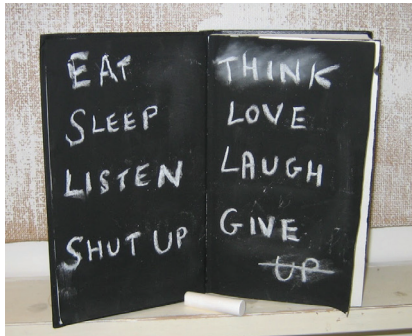 EAT
SLEEP
LISTEN
SHUT UP
THINK
LOVE
LAUGH
GIVE
UP